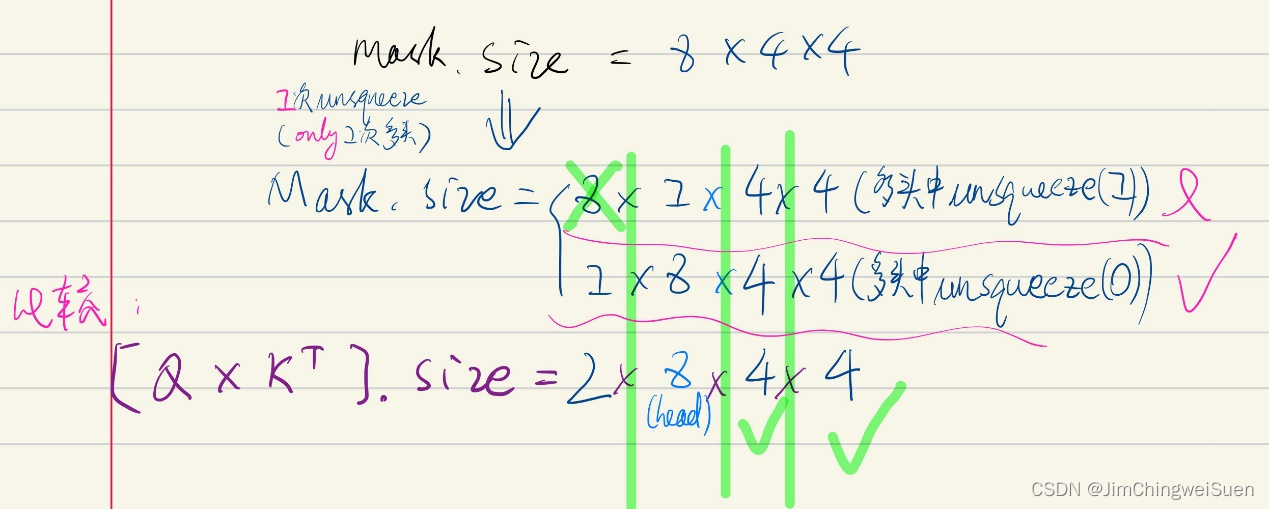 Mask. size = 8 × 4 × 4
1次unsqueeze
(only 1次多头)
Mask. size = { 8 × 1 × 4 × 4 (多头中unsqueeze(1))
1 × 8 × 4 × 4 (多头中unsqueeze(0)) ✓
比较:
[Q × Kᵀ]. size = 2 × 8 × 4 × 4
(head) ✓ ✓
CSDN @JimChingweiSuen